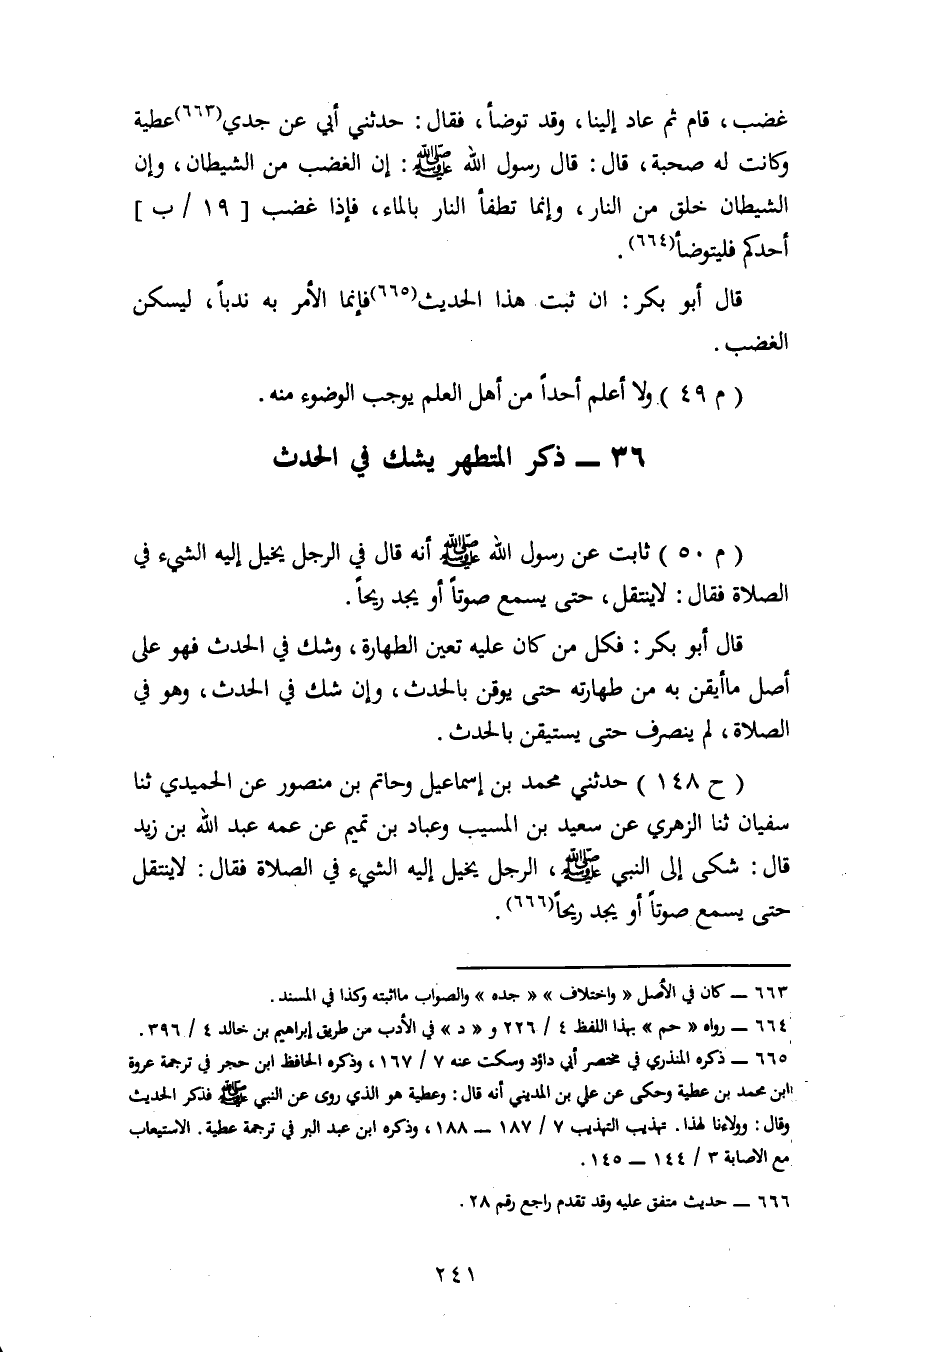 غضب، قام ثم عاد إلينا، وقد توضأ، فقال: حدثني أبي عن جدي(٦٦٣)عطية
وكانت له صحبة، قال: قال رسول الله ﷺ: إن الغضب من الشيطان، وإن
الشيطان خلق من النار، وإنما تطفأ النار بالماء، فإذا غضب [ ١٩ / ب ]
أحدكم فليتوضأ(٦٦٤).
قال أبو بكر: ان ثبت هذا الحديث(٦٦٥)فإنما الأمر به ندباً، ليسكن
الغضب.
( م ٤٩ ) ولا أعلم أحداً من أهل العلم يوجب الوضوء منه.
٣٦ — ذكر المتطهر يشك في الحدث
( م ٥٠ ) ثابت عن رسول الله ﷺ أنه قال في الرجل يخيل إليه الشيء في
الصلاة فقال: لاينتقل، حتى يسمع صوتاً أو يجد ريحاً.
قال أبو بكر: فكل من كان عليه تعين الطهارة، وشك في الحدث فهو على
أصل ماأيقن به من طهارته حتى يوقن بالحدث، وإن شك في الحدث، وهو في
الصلاة، لم ينصرف حتى يستيقن بالحدث.
( ح ١٤٨ ) حدثني محمد بن إسماعيل وحاتم بن منصور عن الحميدي ثنا
سفيان ثنا الزهري عن سعيد بن المسيب وعباد بن تميم عن عمه عبد الله بن زيد
قال: شكى إلى النبي ﷺ، الرجل يخيل إليه الشيء في الصلاة فقال: لاينتقل
حتى يسمع صوتاً أو يجد ريحاً(٦٦٦).
٦٦٣ — كان في الأصل « واختلاف » « جده » والصواب مااثبته وكذا في المسند.
٦٦٤ — رواه « حم » بهذا اللفظ ٤ / ٢٢٦ و « د » في الأدب من طريق إبراهيم بن خالد ٤ / ٣٩٦.
٦٦٥ — ذكره المنذري في مختصر أبي داؤد وسكت عنه ٧ / ١٦٧، وذكره الحافظ ابن حجر في ترجمة عروة
ابن محمد بن عطية وحكى عن علي بن المديني أنه قال: وعطية هو الذي روى عن النبي ﷺ فذكر الحديث
وقال: وولاءنا لهذا. تهذيب التهذيب ٧ / ١٨٧ — ١٨٨، وذكره ابن عبد البر في ترجمة عطية. الاستيعاب
مع الاصابة ٣ / ١٤٤ — ١٤٥.
٦٦٦ — حديث متفق عليه وقد تقدم راجع رقم ٢٨.
٢٤١